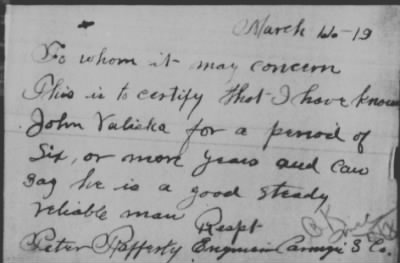 March 26-19
To whom it may concern
This is to certify that I have known
John Valicka for a period of
Six, or more years and can
say he is a good steady
reliable man
Respt
Peter Rafferty Engineer Carnegie S Co.